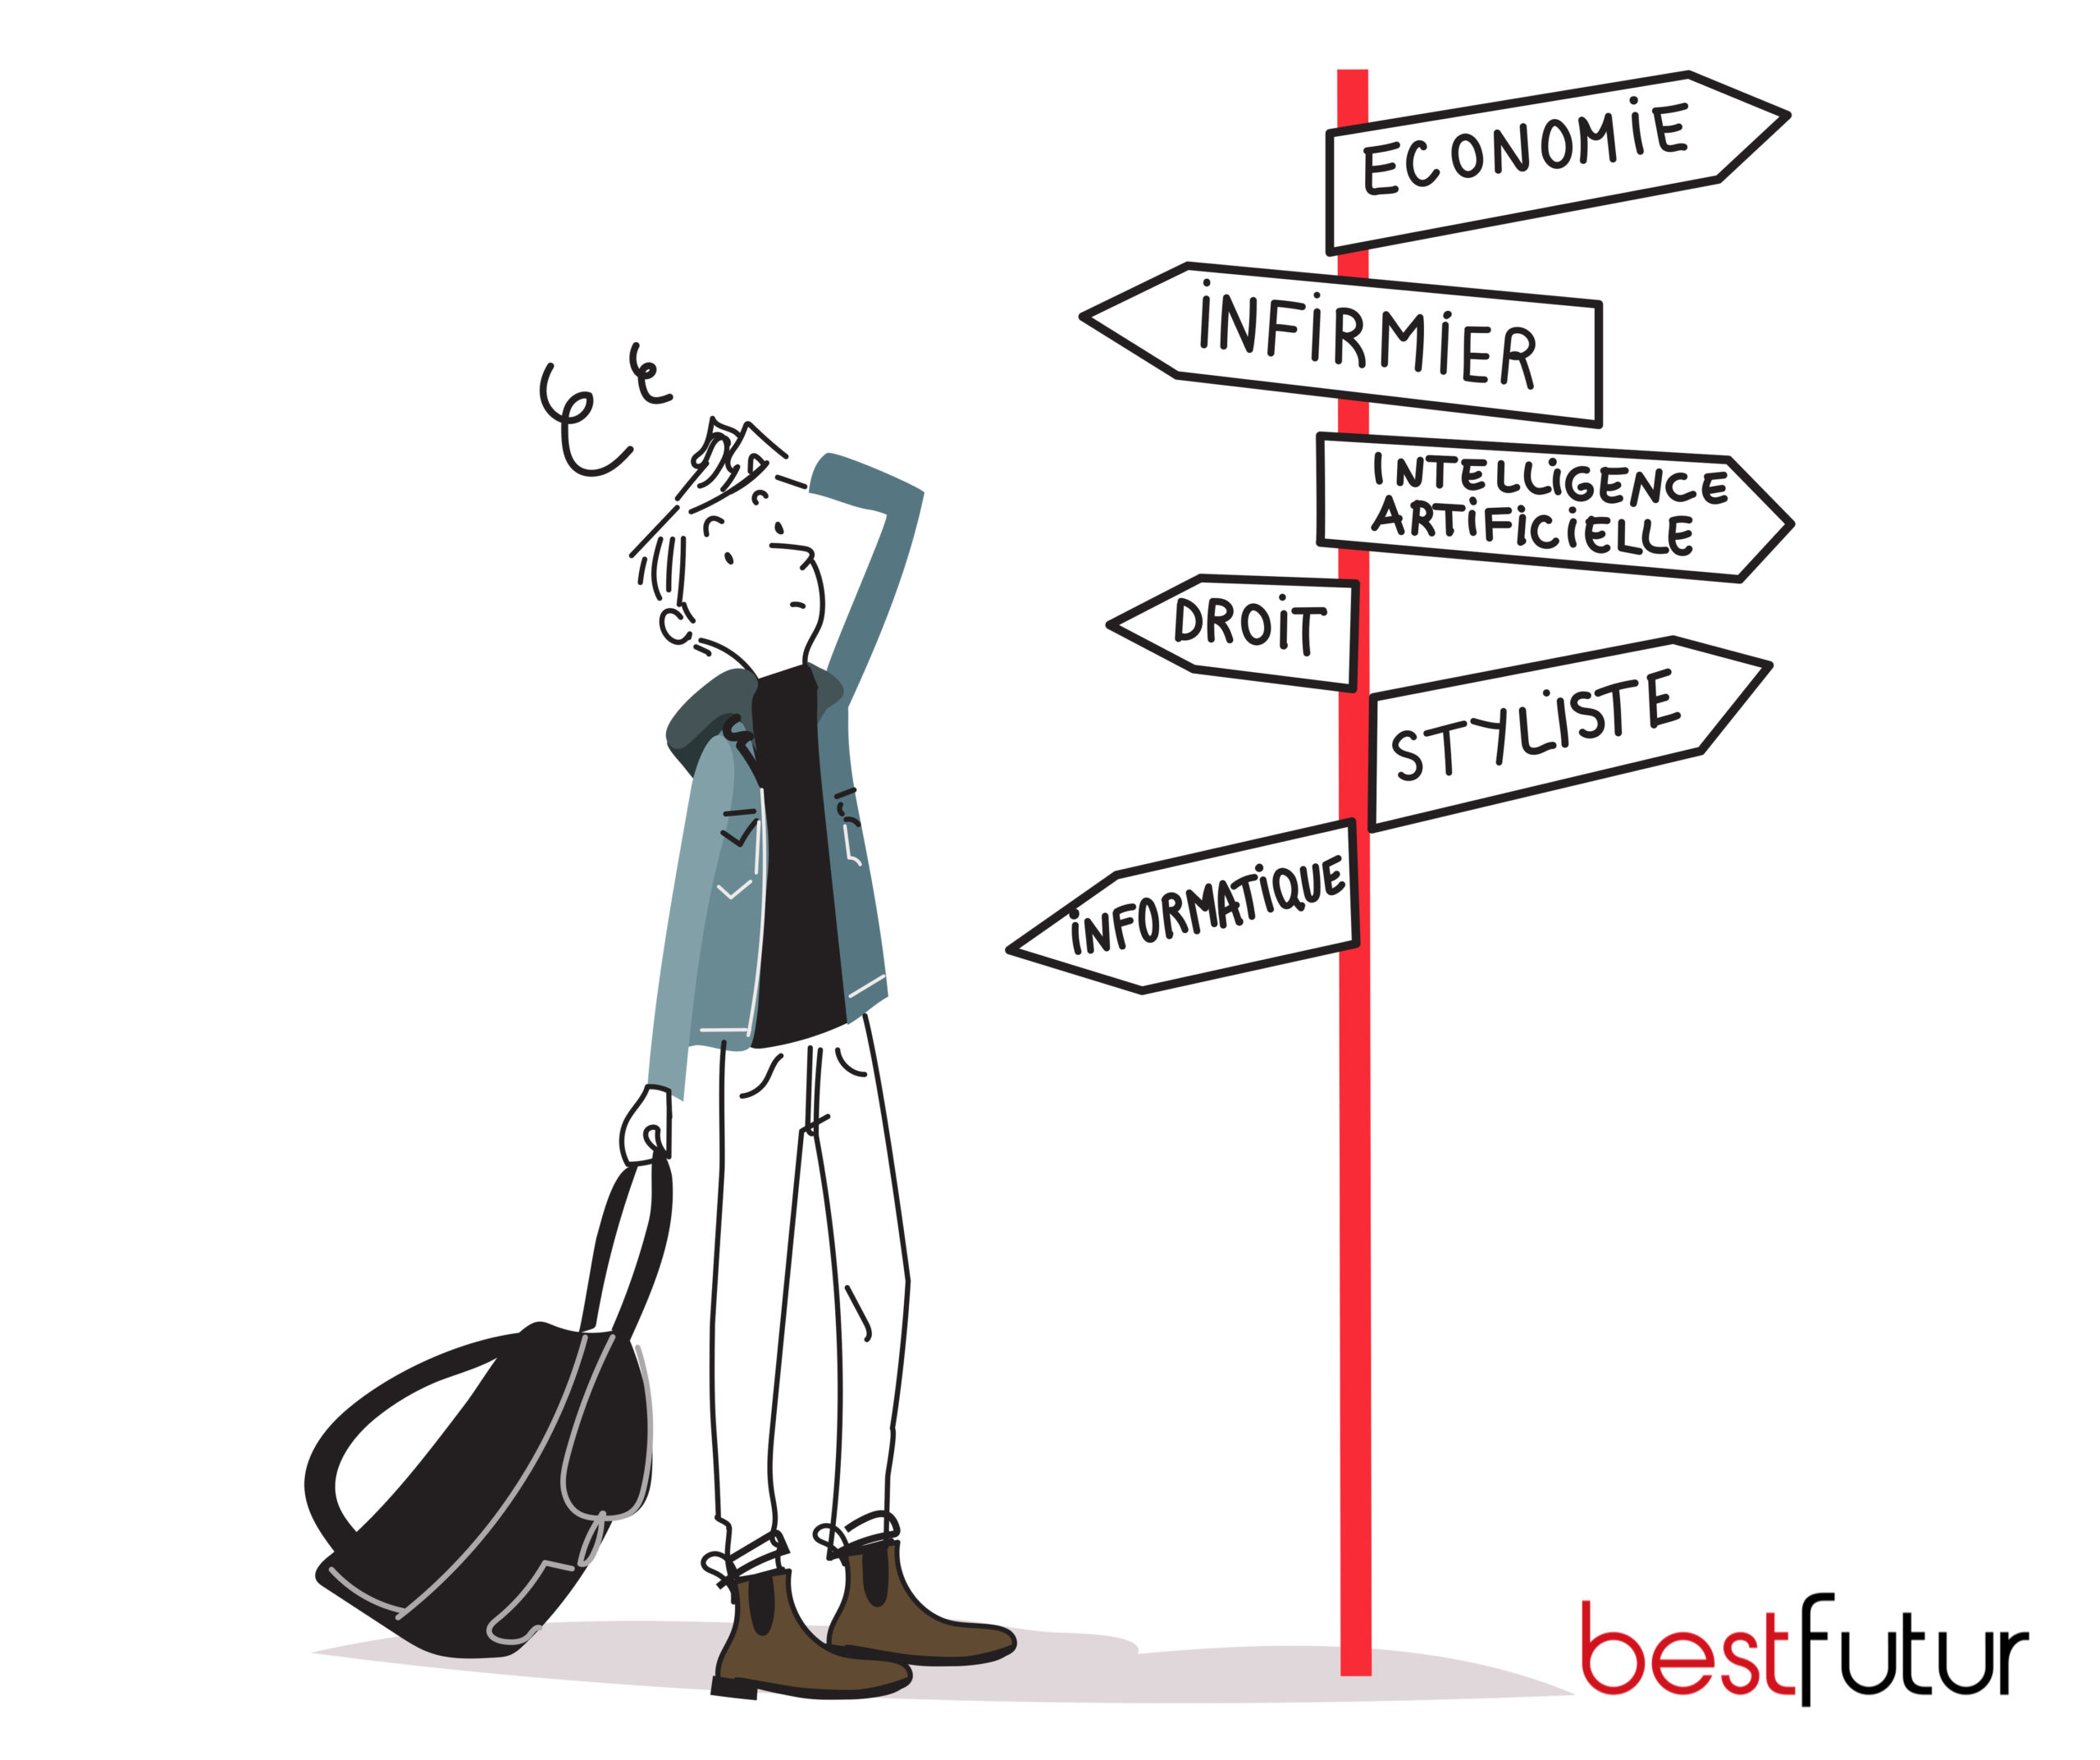 ECONOMIE
INFIRMIER
INTELLIGENCE
ARTIFICIELLE
DROIT
STYLISTE
INFORMATIQUE
bestfutur